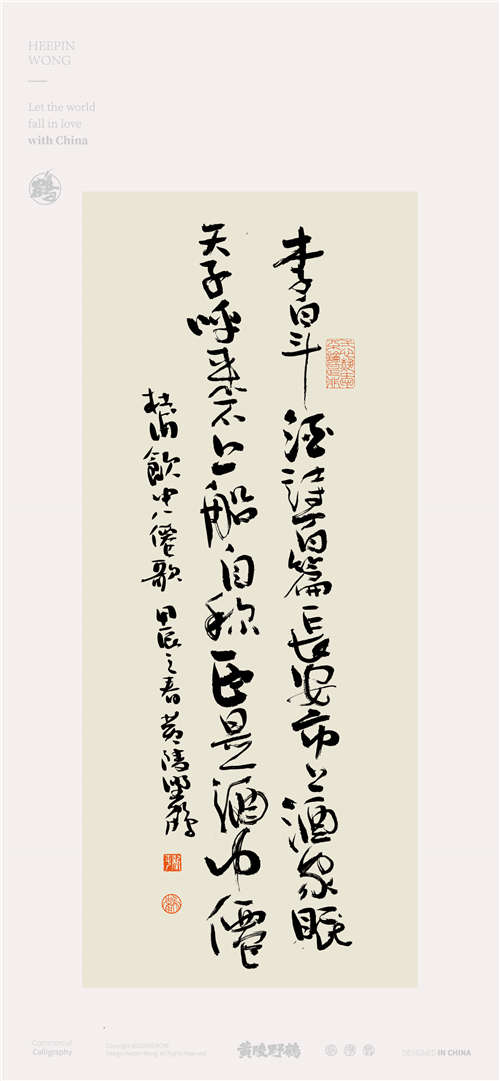 HEEPIN
WONG
Let the world
fall in love
with China
鶴
李白斗酒詩百篇長安市上酒家眠
天子呼来不上船自称臣是酒中僊
杜甫飲中八僊歌 甲辰之春 黄陵野鶴
Commercial
Calligraphy
黄陵野鶴
DESIGNED IN CHINA